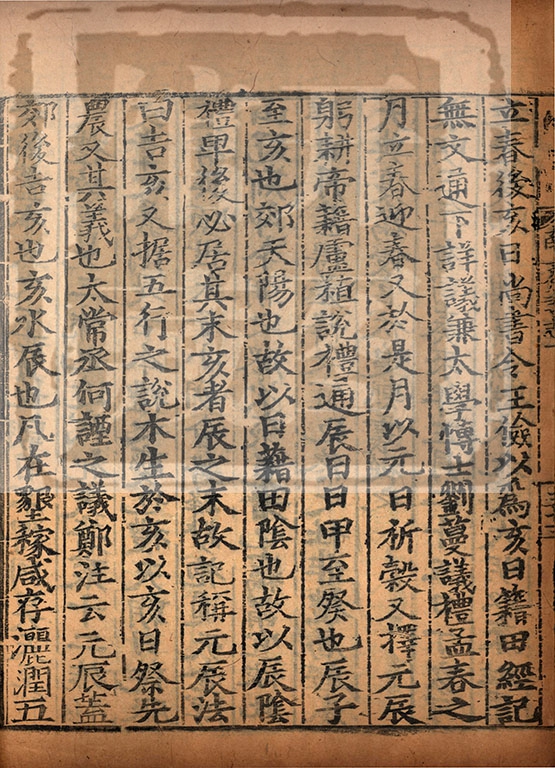 立春後亥日尚書令王儉以為亥日籍田經記
無文通下詳議兼太學博士劉蔓議禮孟春之
月立春迎春又於是月以元日祈穀又擇元辰
躬耕帝籍盧植說禮通辰日日甲至癸也辰子
至亥也郊天陽也故以日藉田陰也故以辰陰
禮卑後必居其末亥者辰之末故記稱元辰法
曰吉亥又据五行之說木生於亥以亥日祭先
農又其義也太常丞何諲之議鄭注云元辰蓋
郊後吉亥也亥水辰也凡在墾稼咸存灑潤五